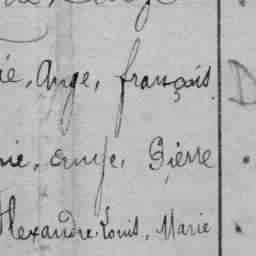 ie, Ange, françois.
nie, Ange, Pierre
Alexandre, Louis, Marie